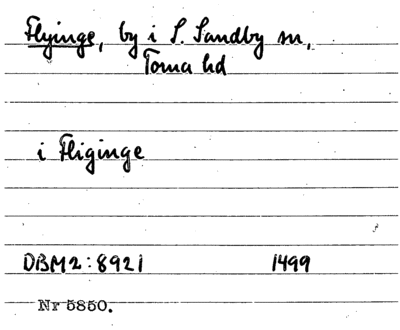 Flyinge, by i S. Sandby sn,
Torna hd
i Fliginge
DBM2:8921 1499
Nr 5850.